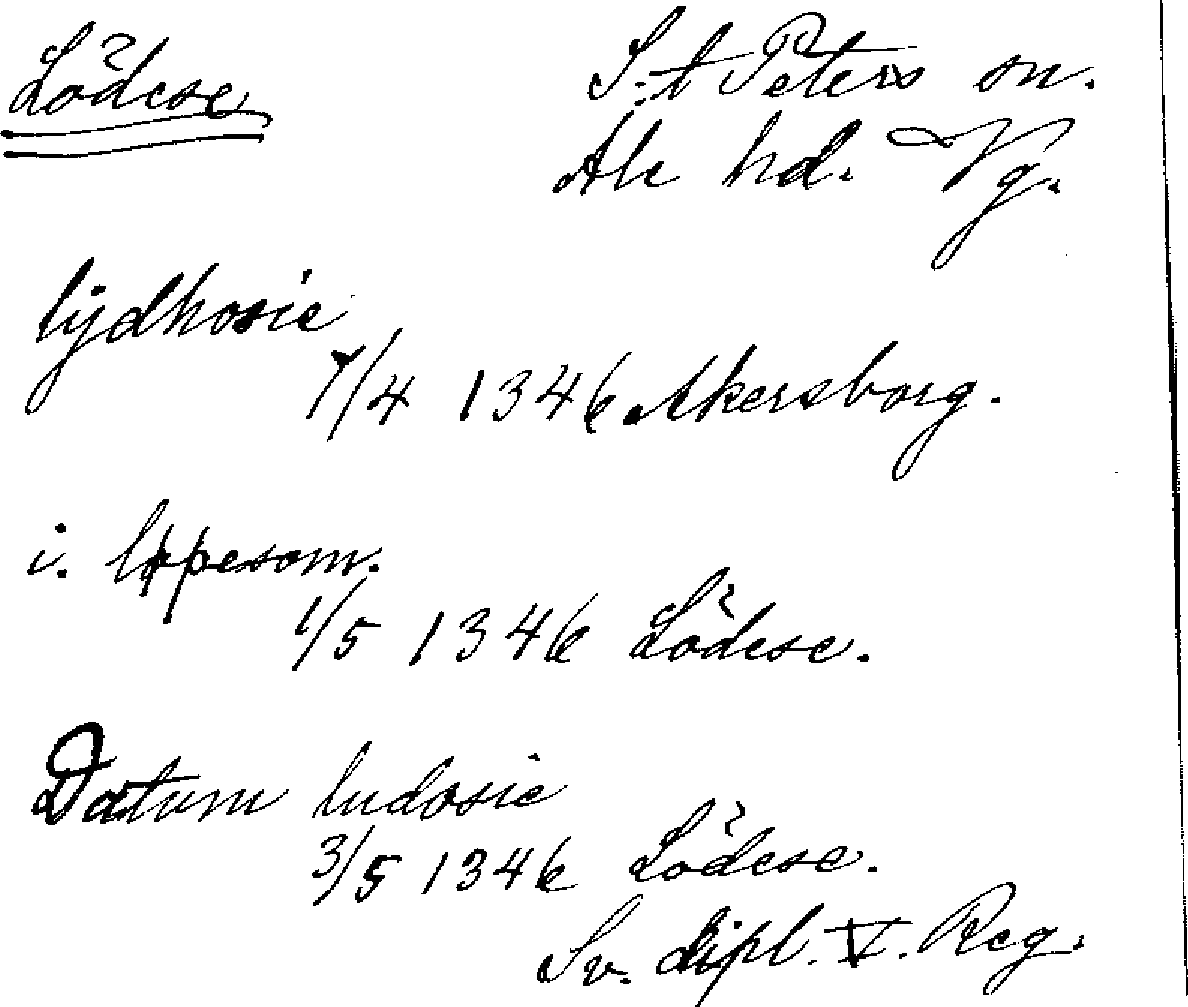 Lödese
S:t Peters sn.
Ale hd. Vg.
lydhosie
7/4 1346 Akersborg.
i.
1/5 1346 Lödese.
Datum ludosie
3/5 1346 Lödese.
Sv. dipl. V. Reg.